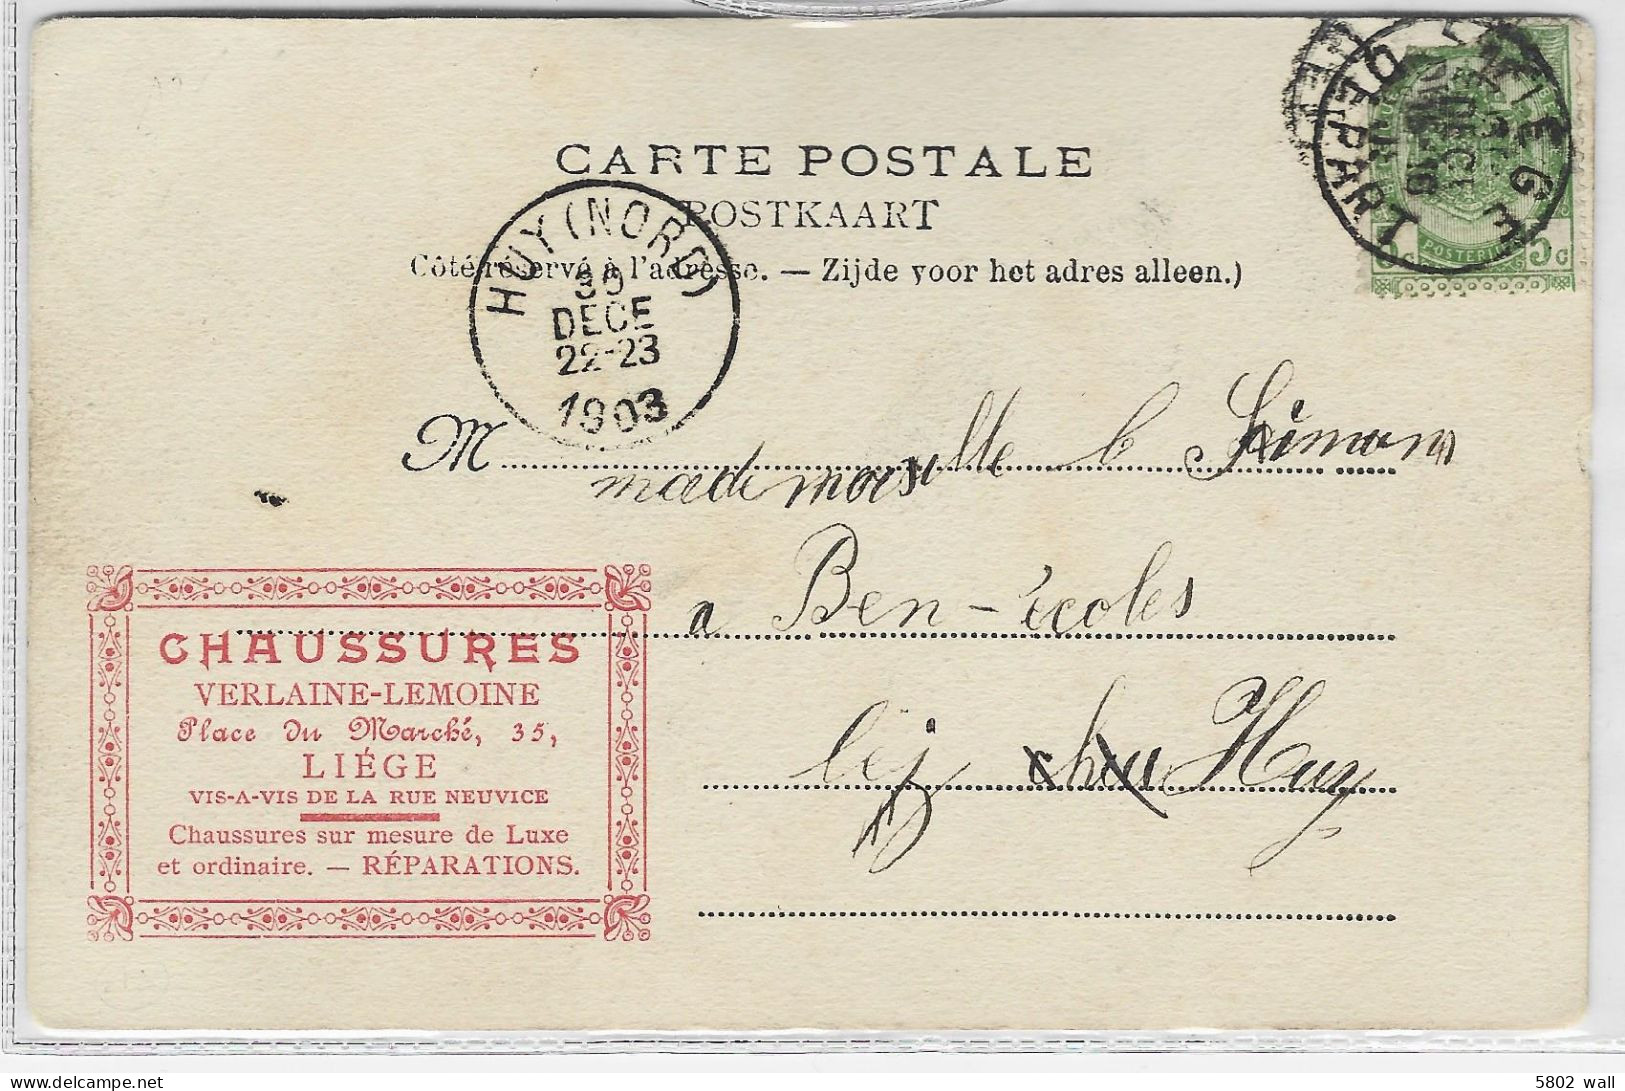 CARTE POSTALE
POSTKAART
Côté réservé à l'adresse. — Zijde voor het adres alleen.)
HUY (NORD)
30
DECE
22-23
1903
LIEGE
DECE
DEPART
POSTERIJEN
5c 5c
M mademoiselle b Simon
a Ben-écoles
lij Huy
CHAUSSURES
VERLAINE-LEMOINE
Place du Marché, 35,
LIÉGE
VIS-A-VIS DE LA RUE NEUVICE
Chaussures sur mesure de Luxe
et ordinaire. — RÉPARATIONS.
5802 wall